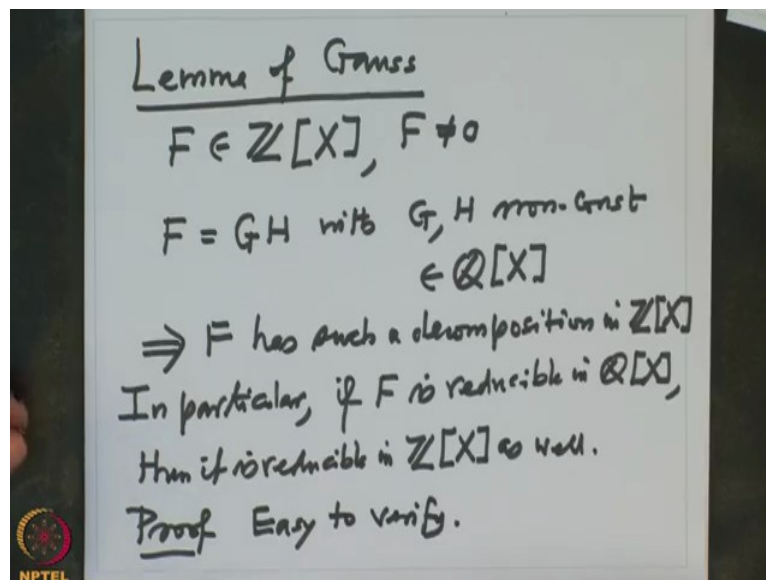 Lemma of Gauss
F ∈ ℤ[X], F ≠ 0
F = GH with G, H non-const
∈ ℚ[X]
⇒ F has such a decomposition in ℤ[X]
In particular, if F is reducible in ℚ[X],
then it is reducible in ℤ[X] as well.
Proof Easy to verify.
NPTEL